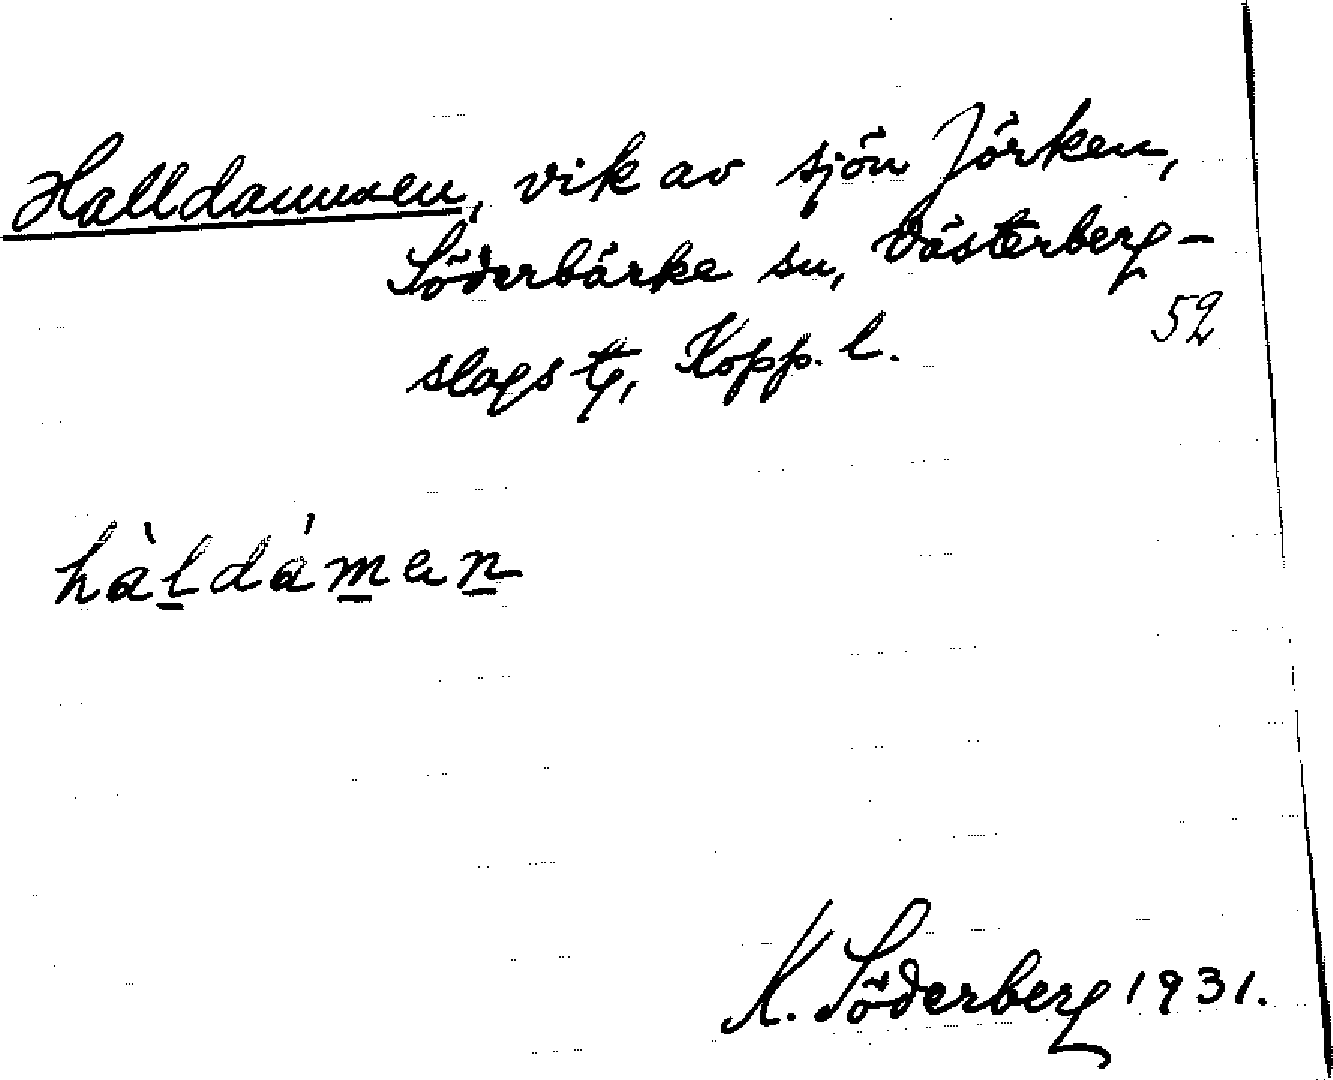 Halldammen, vik av sjön Jörken,
Söderbärke sn, Västerberg-
slags tg, Kopp. l.
52
hàldámen
K. Söderberg 1931.